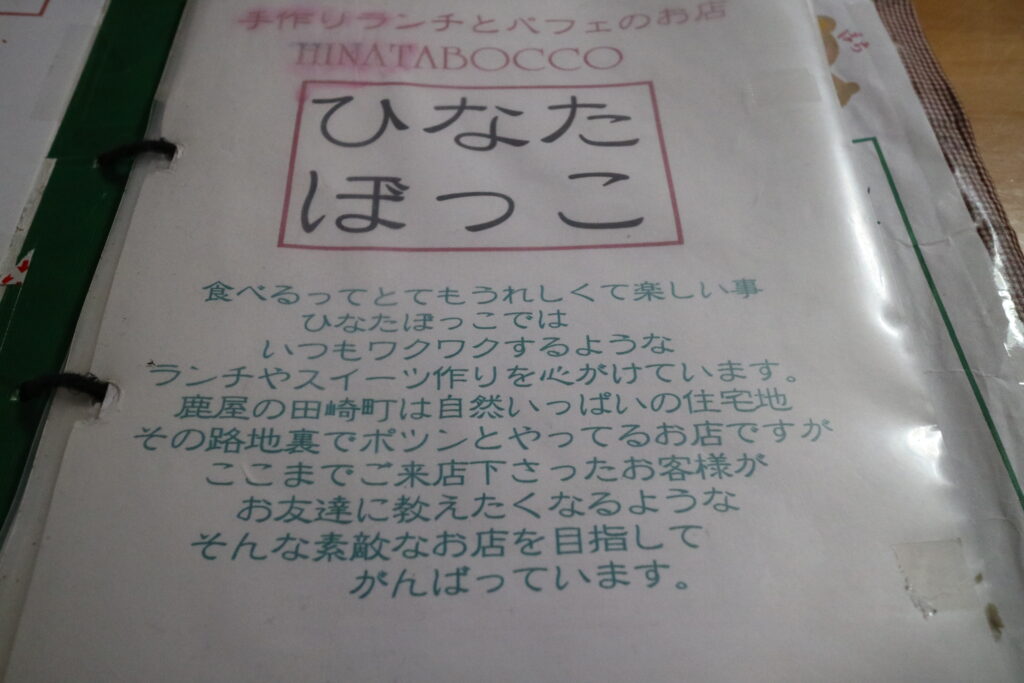 手作りランチとパフェのお店
HINATABOCCO
ひなた
ぼっこ
食べるってとてもうれしくて楽しい事
ひなたぼっこでは
いつもワクワクするような
ランチやスイーツ作りを心がけています。
鹿屋の田崎町は自然いっぱいの住宅地
その路地裏でポツンとやってるお店ですが
ここまでご来店下さったお客様が
お友達に教えたくなるような
そんな素敵なお店を目指して
がんばっています。